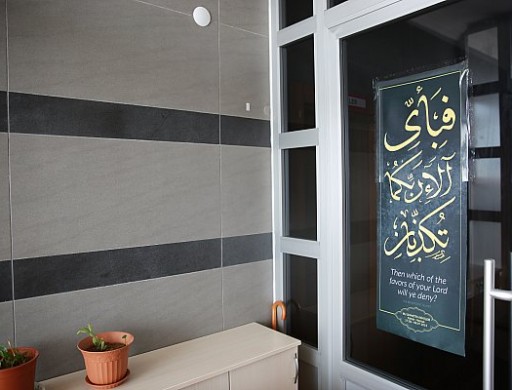 فَبِأَيِّ
آلَاءِ رَبِّكُمَا
تُكَذِّبَانِ
Then which of the
favors of your Lord
will ye deny?